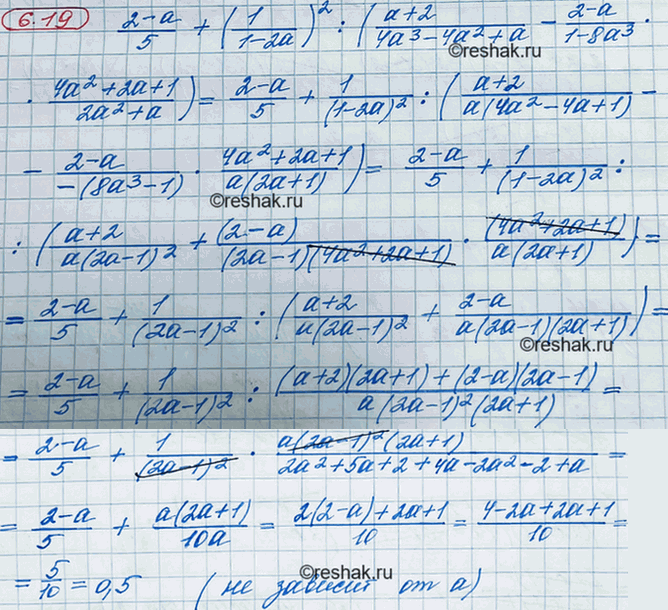 6.19 (2-a)/5 + (1/(1-2a))² : ((a+2)/(4a³-4a²+a) - (2-a)/(1-8a³) ·
©reshak.ru
· (4a²+2a+1)/(2a²+a)) = (2-a)/5 + 1/(1-2a)² : ((a+2)/(a(4a²-4a+1)) -
- (2-a)/(-(8a³-1)) · (4a²+2a+1)/(a(2a+1))) = (2-a)/5 + 1/(1-2a)² :
©reshak.ru
: ((a+2)/(a(2a-1)²) + (2-a)/((2a-1)(4a²+2a+1)) · (4a²+2a+1)/(a(2a+1))) =
= (2-a)/5 + 1/(2a-1)² : ((a+2)/(a(2a-1)²) + (2-a)/(a(2a-1)(2a+1))) =
©reshak.ru
= (2-a)/5 + 1/(2a-1)² : ((a+2)(2a+1)+(2-a)(2a-1))/(a(2a-1)²(2a+1)) =
= (2-a)/5 + 1/(2a-1)² · (a(2a-1)²(2a+1))/(2a²+5a+2+4a-2a²-2+a) =
= (2-a)/5 + (a(2a+1))/(10a) = (2(2-a)+2a+1)/10 = (4-2a+2a+1)/10 =
©reshak.ru
= 5/10 = 0,5 (не зависит от a)